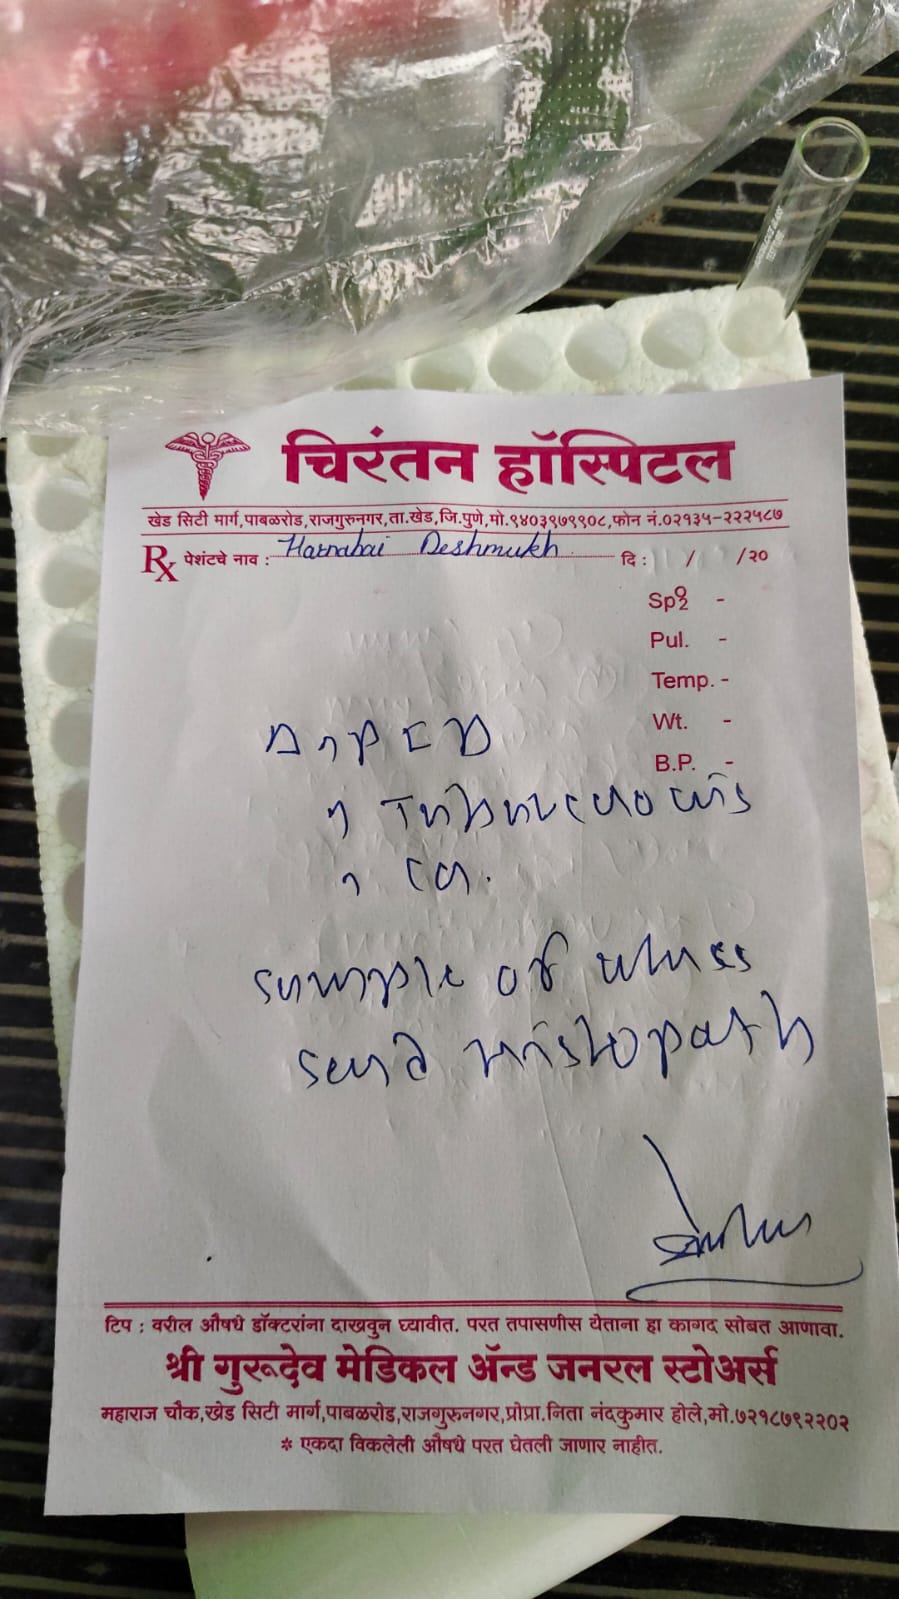 चिरंतन हॉस्पिटल
खेड सिटी मार्ग,पाबळरोड,राजगुरुनगर,ता.खेड,जि.पुणे,मो.९४०३९७९९०८,फोन नं.०२१३५-२२२५८७
Rx पेशंटचे नाव : Deshmukh दि : / /२०
Spo2 -
Pul. -
Temp. -
Wt. -
B.P. -
of
send histopath
टिप : वरील औषधे डॉक्टरांना दाखवुन घ्यावीत. परत तपासणीस येताना हा कागद सोबत आणावा.
श्री गुरूदेव मेडिकल ॲन्ड जनरल स्टोअर्स
महाराज चौक,खेड सिटी मार्ग,पाबळरोड,राजगुरुनगर,प्रोप्रा.निता नंदकुमार होले,मो.७२१८७९२२०२
* एकदा विकलेली औषधे परत घेतली जाणार नाहीत.